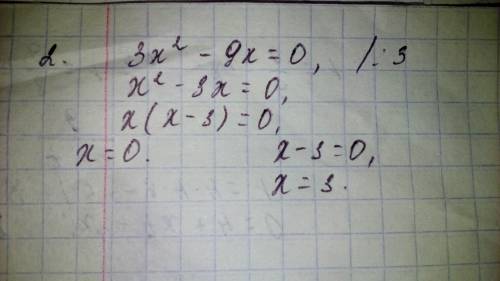 2. 3x² - 9x = 0, /: 3
x² - 3x = 0,
x(x - 3) = 0,
x = 0. x - 3 = 0,
x = 3.